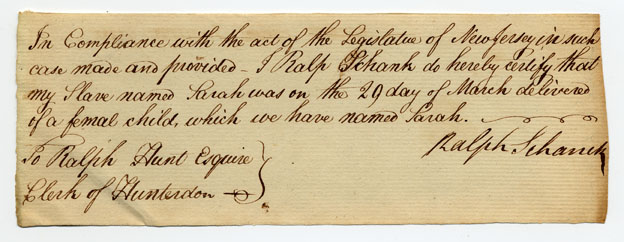 In Compliance with the act of the Legislatue of New Jersey in such
case made and provided I Ralp Schank do hereby certify that
my Slave named Sarah was on the 29 day of March delivered
of a femal child, which we have named Sarah.
Ralph Schanck
To Ralph Hunt Esquire
Clerk of Hunterdon